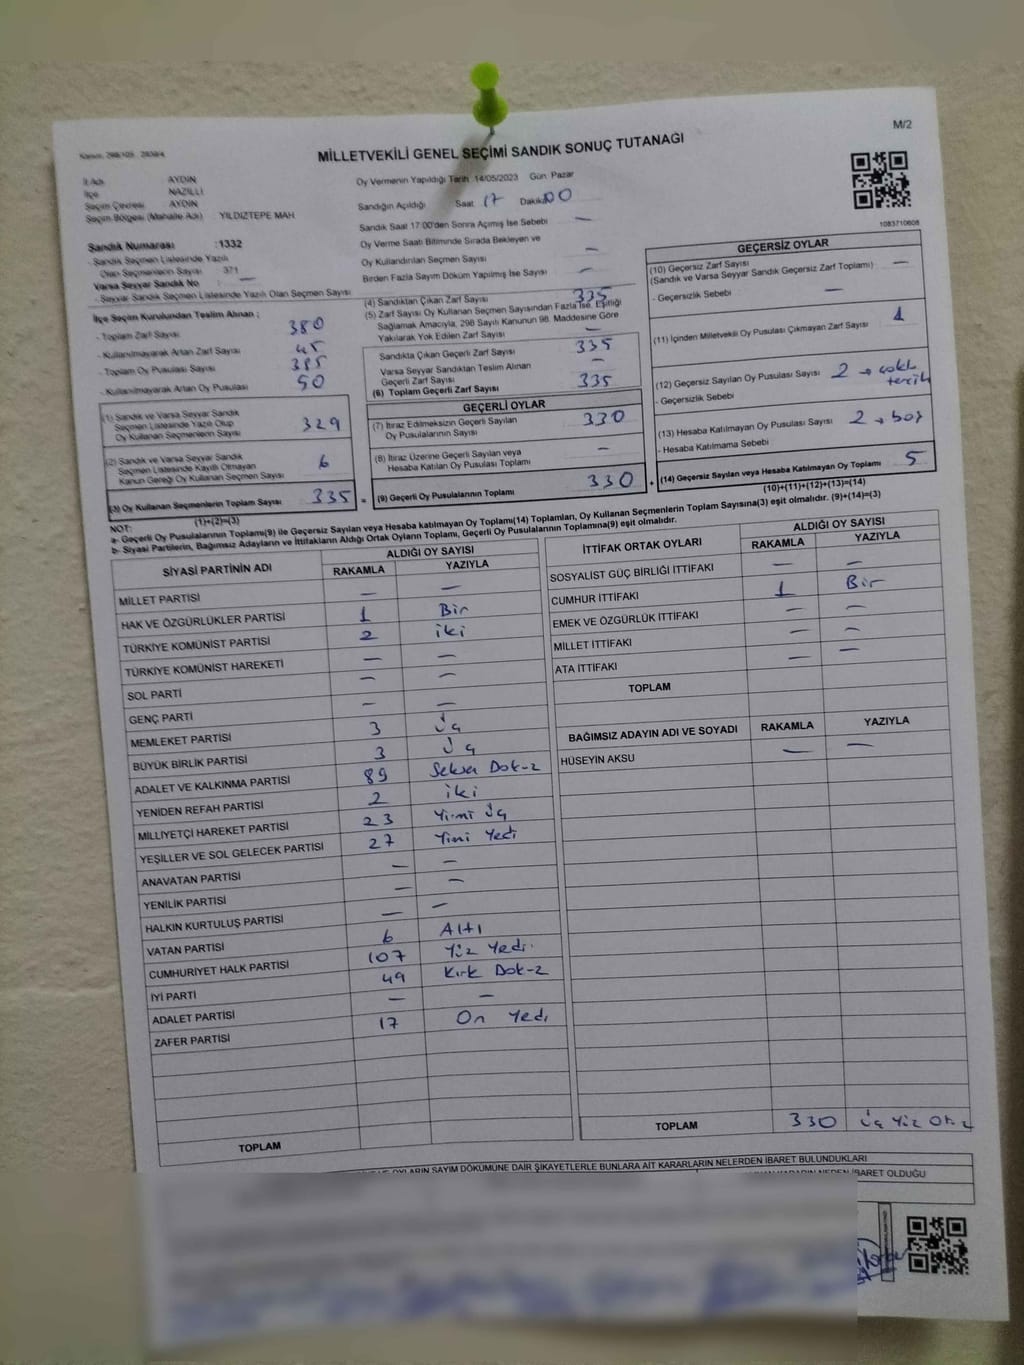 Kanun: 298/105 , 2839/4
M/2
MİLLETVEKİLİ GENEL SEÇİMİ SANDIK SONUÇ TUTANAĞI
İl Adı AYDIN
İlçe NAZİLLİ
Seçim Çevresi AYDIN
Seçim Bölgesi (Mahalle Adı) YILDIZTEPE MAH
Sandık Numarası :1332
- Sandık Seçmen Listesinde Yazılı
Olan Seçmenlerin Sayısı 371
Varsa Seyyar Sandık No —
- Seyyar Sandık Seçmen Listesinde Yazılı Olan Seçmen Sayısı
Oy Vermenin Yapıldığı Tarih 14/05/2023 Gün Pazar
Sandığın Açıldığı Saat 17 Dakika 00
Sandık Saat 17:00'den Sonra Açılmış İse Sebebi —
Oy Verme Saati Bitiminde Sırada Bekleyen ve
Oy Kullandırılan Seçmen Sayısı —
Birden Fazla Sayım Döküm Yapılmış İse Sayısı —
1083710608
İlçe Seçim Kurulundan Teslim Alınan ;
- Toplam Zarf Sayısı 380
- Kullanılmayarak Artan Zarf Sayısı 45
- Toplam Oy Pusulası Sayısı 385
- Kullanılmayarak Artan Oy Pusulası 50
(1) Sandık ve Varsa Seyyar Sandık
Seçmen Listesinde Yazılı Olup
Oy Kullanan Seçmenlerin Sayısı 329
(2) Sandık ve Varsa Seyyar Sandık
Seçmen Listesinde Kayıtlı Olmayan
Kanun Gereği Oy Kullanan Seçmen Sayısı 6
(3) Oy Kullanan Seçmenlerin Toplam Sayısı 335 =
(1)+(2)=(3)
(4) Sandıktan Çıkan Zarf Sayısı 335
(5) Zarf Sayısı Oy Kullanan Seçmen Sayısından Fazla İse, Eşitliği
Sağlamak Amacıyla, 298 Sayılı Kanunun 98. Maddesine Göre
Yakılarak Yok Edilen Zarf Sayısı —
Sandıkta Çıkan Geçerli Zarf Sayısı 335
Varsa Seyyar Sandıktan Teslim Alınan
Geçerli Zarf Sayısı —
(6) Toplam Geçerli Zarf Sayısı 335
GEÇERLİ OYLAR
(7) İtiraz Edilmeksizin Geçerli Sayılan
Oy Pusulalarının Sayısı 330
(8) İtiraz Üzerine Geçerli Sayılan veya
Hesaba Katılan Oy Pusulası Toplamı —
(9) Geçerli Oy Pusulalarının Toplamı 330 +
GEÇERSİZ OYLAR
(10) Geçersiz Zarf Sayısı —
(Sandık ve Varsa Seyyar Sandık Geçersiz Zarf Toplamı)
- Geçersizlik Sebebi —
(11) İçinden Milletvekili Oy Pusulası Çıkmayan Zarf Sayısı 1
(12) Geçersiz Sayılan Oy Pusulası Sayısı 2 → çoklu tercih
- Geçersizlik Sebebi
(13) Hesaba Katılmayan Oy Pusulası Sayısı 2 → boş
- Hesaba Katılmama Sebebi
(14) Geçersiz Sayılan veya Hesaba Katılmayan Oy Toplamı 5
(10)+(11)+(12)+(13)=(14)
NOT:
a- Geçerli Oy Pusulalarının Toplamı(9) ile Geçersiz Sayılan veya Hesaba katılmayan Oy Toplamı(14) Toplamları, Oy Kullanan Seçmenlerin Toplam Sayısına(3) eşit olmalıdır. (9)+(14)=(3)
b- Siyasi Partilerin, Bağımsız Adayların ve İttifakların Aldığı Ortak Oyların Toplamı, Geçerli Oy Pusulalarının Toplamına(9) eşit olmalıdır.
SİYASİ PARTİNİN ADI ALDIĞI OY SAYISI
RAKAMLA YAZIYLA
MİLLET PARTİSİ — —
HAK VE ÖZGÜRLÜKLER PARTİSİ 1 Bir
TÜRKİYE KOMÜNİST PARTİSİ 2 iki
TÜRKİYE KOMÜNİST HAREKETİ — —
SOL PARTİ — —
GENÇ PARTİ — —
MEMLEKET PARTİSİ 3 Üç
BÜYÜK BİRLİK PARTİSİ 3 Üç
ADALET VE KALKINMA PARTİSİ 89 Seksen Dokuz
YENİDEN REFAH PARTİSİ 2 iki
MİLLİYETÇİ HAREKET PARTİSİ 23 Yirmi Üç
YEŞİLLER VE SOL GELECEK PARTİSİ 27 Yirmi Yedi
ANAVATAN PARTİSİ — —
YENİLİK PARTİSİ — —
HALKIN KURTULUŞ PARTİSİ — —
VATAN PARTİSİ 6 Altı
CUMHURİYET HALK PARTİSİ 107 Yüz Yedi
İYİ PARTİ 49 Kırk Dokuz
ADALET PARTİSİ — —
ZAFER PARTİSİ 17 On Yedi
TOPLAM
İTTİFAK ORTAK OYLARI ALDIĞI OY SAYISI
RAKAMLA YAZIYLA
SOSYALİST GÜÇ BİRLİĞİ İTTİFAKI — —
CUMHUR İTTİFAKI 1 Bir
EMEK VE ÖZGÜRLÜK İTTİFAKI — —
MİLLET İTTİFAKI — —
ATA İTTİFAKI — —
TOPLAM
BAĞIMSIZ ADAYIN ADI VE SOYADI RAKAMLA YAZIYLA
HÜSEYİN AKSU — —
TOPLAM 330 Üç Yüz Otuz
OYLARIN SAYIM DÖKÜMÜNE DAİR ŞİKAYETLERLE BUNLARA AİT KARARLARIN NELERDEN İBARET BULUNDUKLARI
KARARIN NEDEN İBARET OLDUĞU